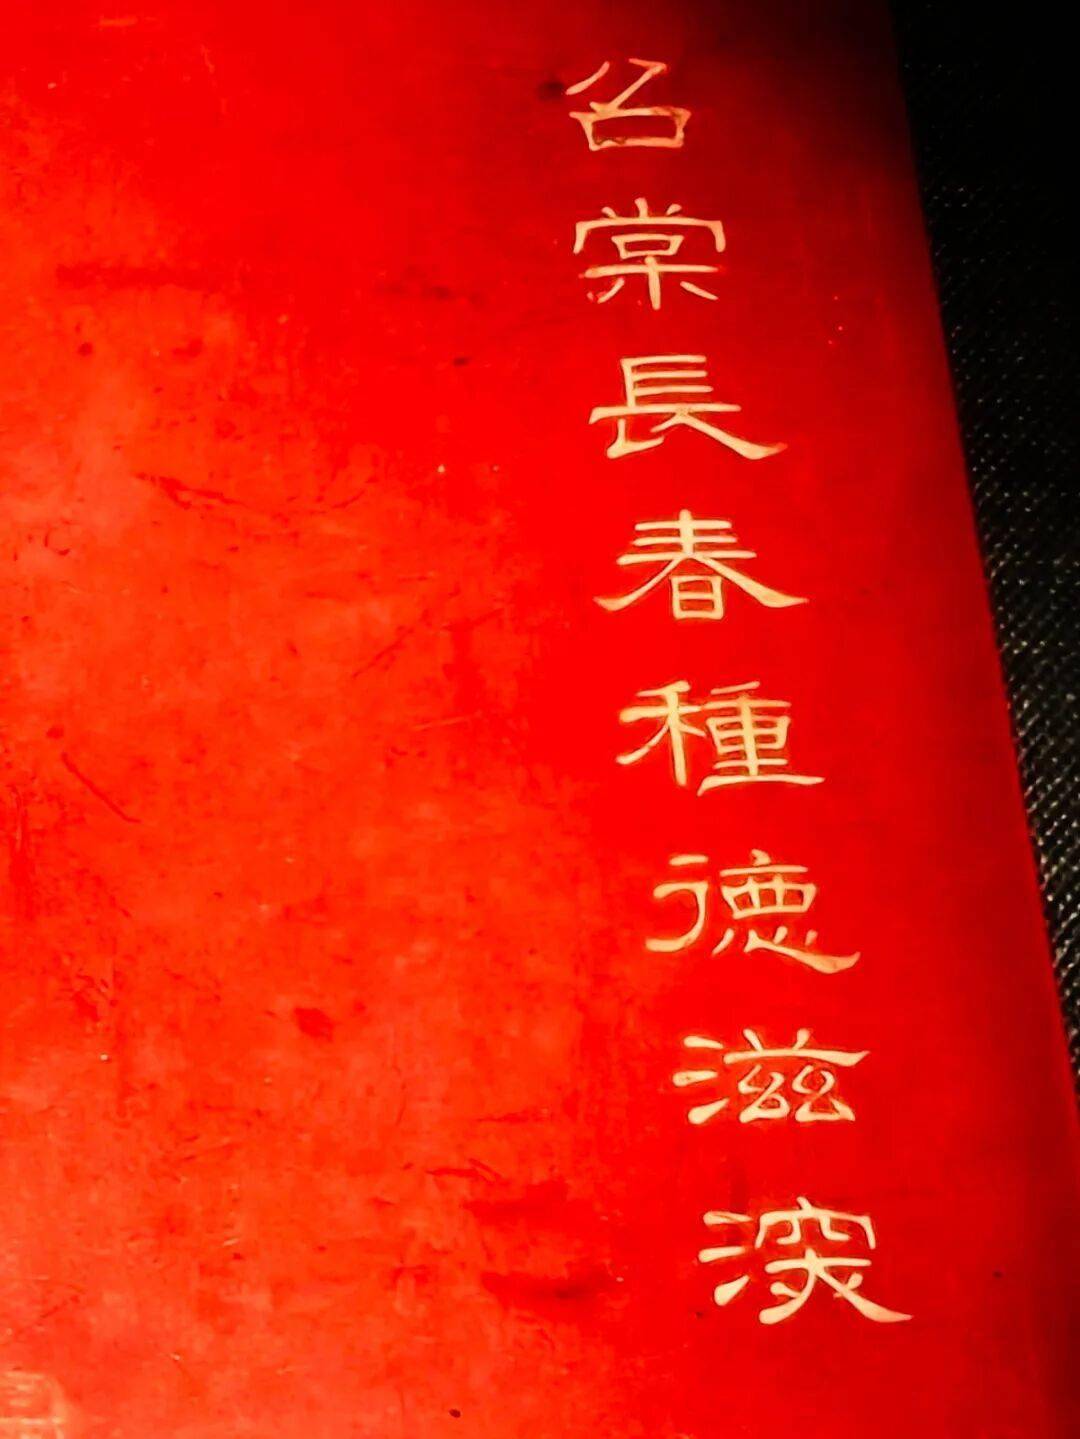 召棠長春種德滋深